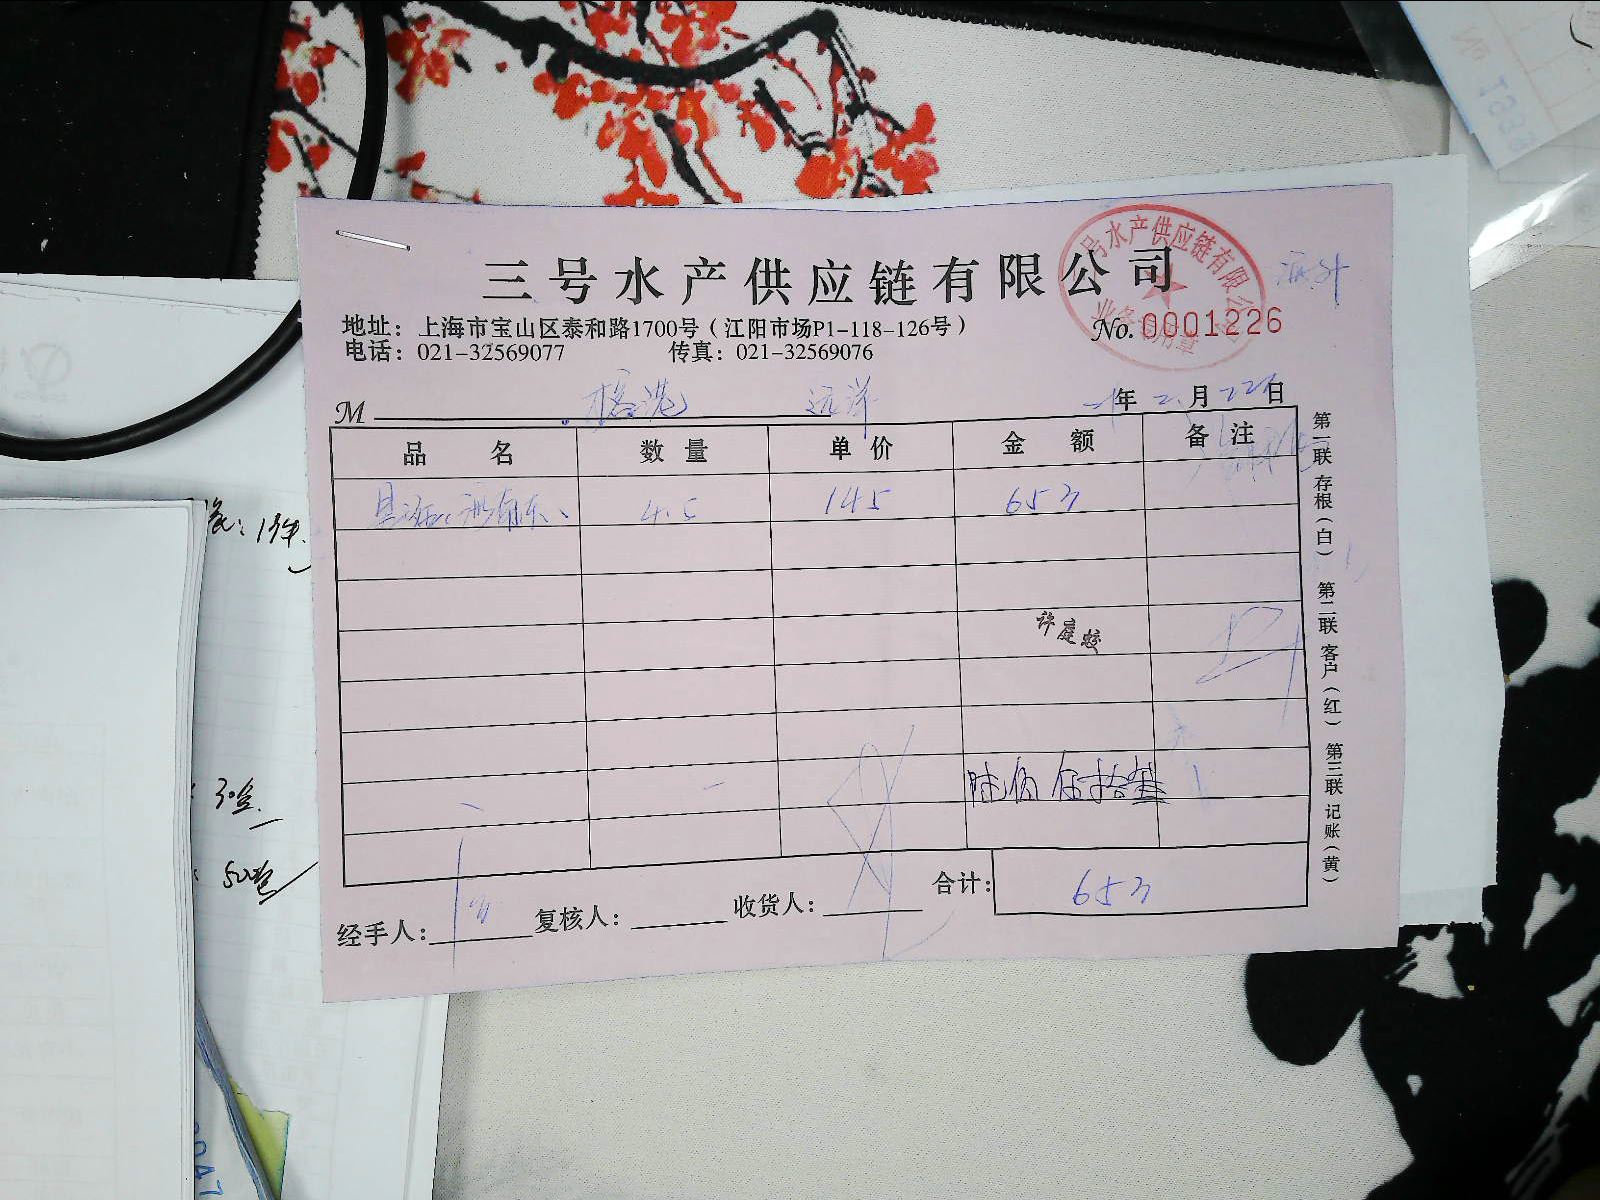 三号水产供应链有限公司
地址：上海市宝山区泰和路1700号（江阳市场P1-118-126号）
电话：021-32569077 传真：021-32569076
号水产供应链有限公
业务专用章
No. 0001226
M 远洋 年 2 月 22 日
品名 数量 单价 金额 备注
4.5 145 653
许庭蛟
陆佰伍拾叁
合计：653
经手人： 复核人： 收货人：
第一联 存根（白） 第二联 客户（红） 第三联 记账（黄）
13件.
30盒.
50盒